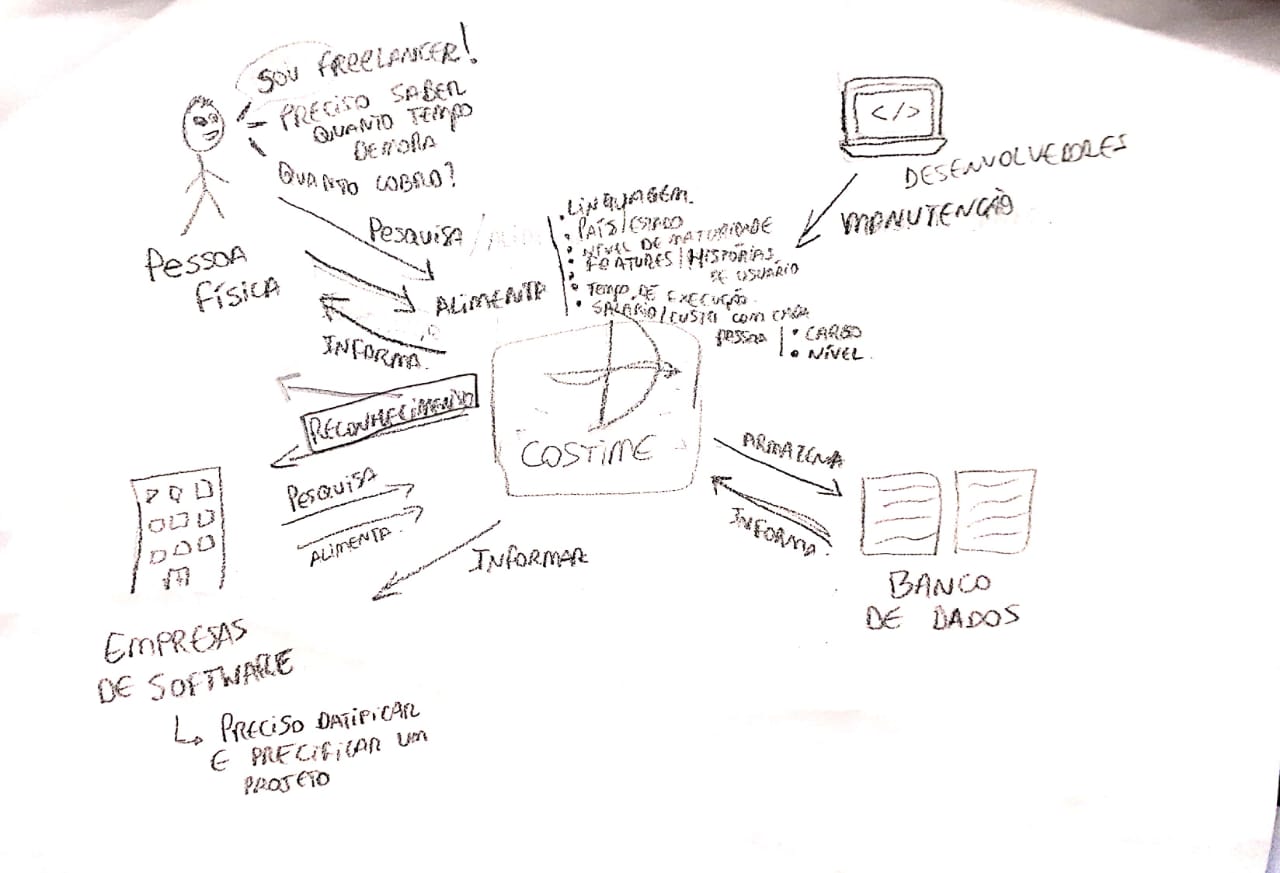 SOU FREELANCER!
PRECISO SABER
QUANTO TEMPO
DEMORA
QUANTO COBRO?
PESSOA
FÍSICA
Pesquisa /
ALIMENTA
INFORMA.
• LINGUAGEM.
• PAÍS/ESTADO
• NÍVEL DE MATURIDADE
• FEATURES | HISTÓRIAS
DE USUÁRIO
• TEMPO DE EXECUÇÃO.
• SALÁRIO/CUSTO COM CADA
PESSOA | • CARGO
• NÍVEL.
</>
DESENVOLVEDORES
MANUTENÇÃO
RECONHECIMENTO
COSTIME
Pesquisa
ALIMENTA.
INFORMAR
ARMAZENA
INFORMA.
BANCO
DE DADOS
EMPRESAS
DE SOFTWARE
↳ PRECISO DATIFICAR
E PRECIFICAR UM
PROJETO